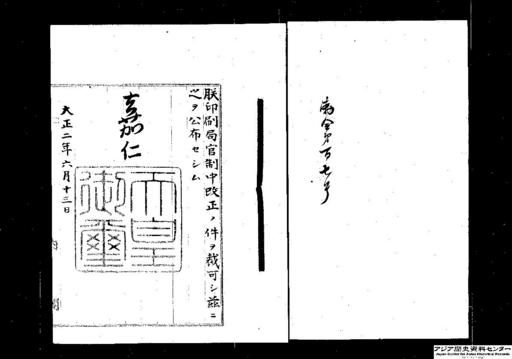 勅令第百七号
朕印刷局官制中改正ノ件ヲ裁可シ茲ニ
之ヲ公布セシム
嘉仁
天皇御璽
大正二年六月十三日
アジア歴史資料センター
Japan Center for Asian Historical Records